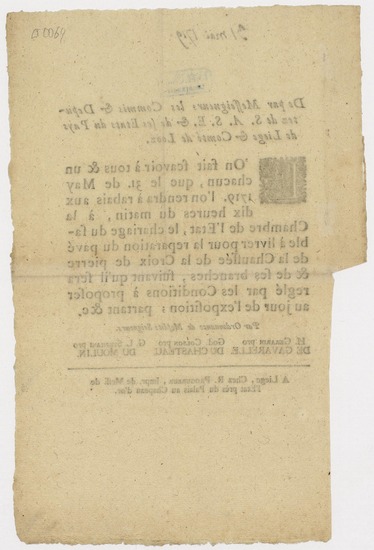 31 mai 1719
De par Messeigneurs les Commis & Depu-
tez de S. A. S. E. & de ses Etats du Pays
de Liege & Comté de Looz.
ON fait sçavoir à tous & un
chacun, que le 31. de May
1719. l'on rendra à rabais aux
dix heures du matin, à la
Chambre de l'Etat, le chariage du sa-
ble à livrer pour la reparation du pavé
de la Chaussée de la Croix de pierre
& de ses branches, suivant qu'il sera
reglé par les Conditions à proposer
au jour de l'exposition; partant &c.
Par Ordonnance de Mesdits Seigneurs,
DE CAVARELLE. DU CHASTEAU. DU MOULIN.
A Liege, Chez
l'Etat près du Palais au Chapeau d'or.